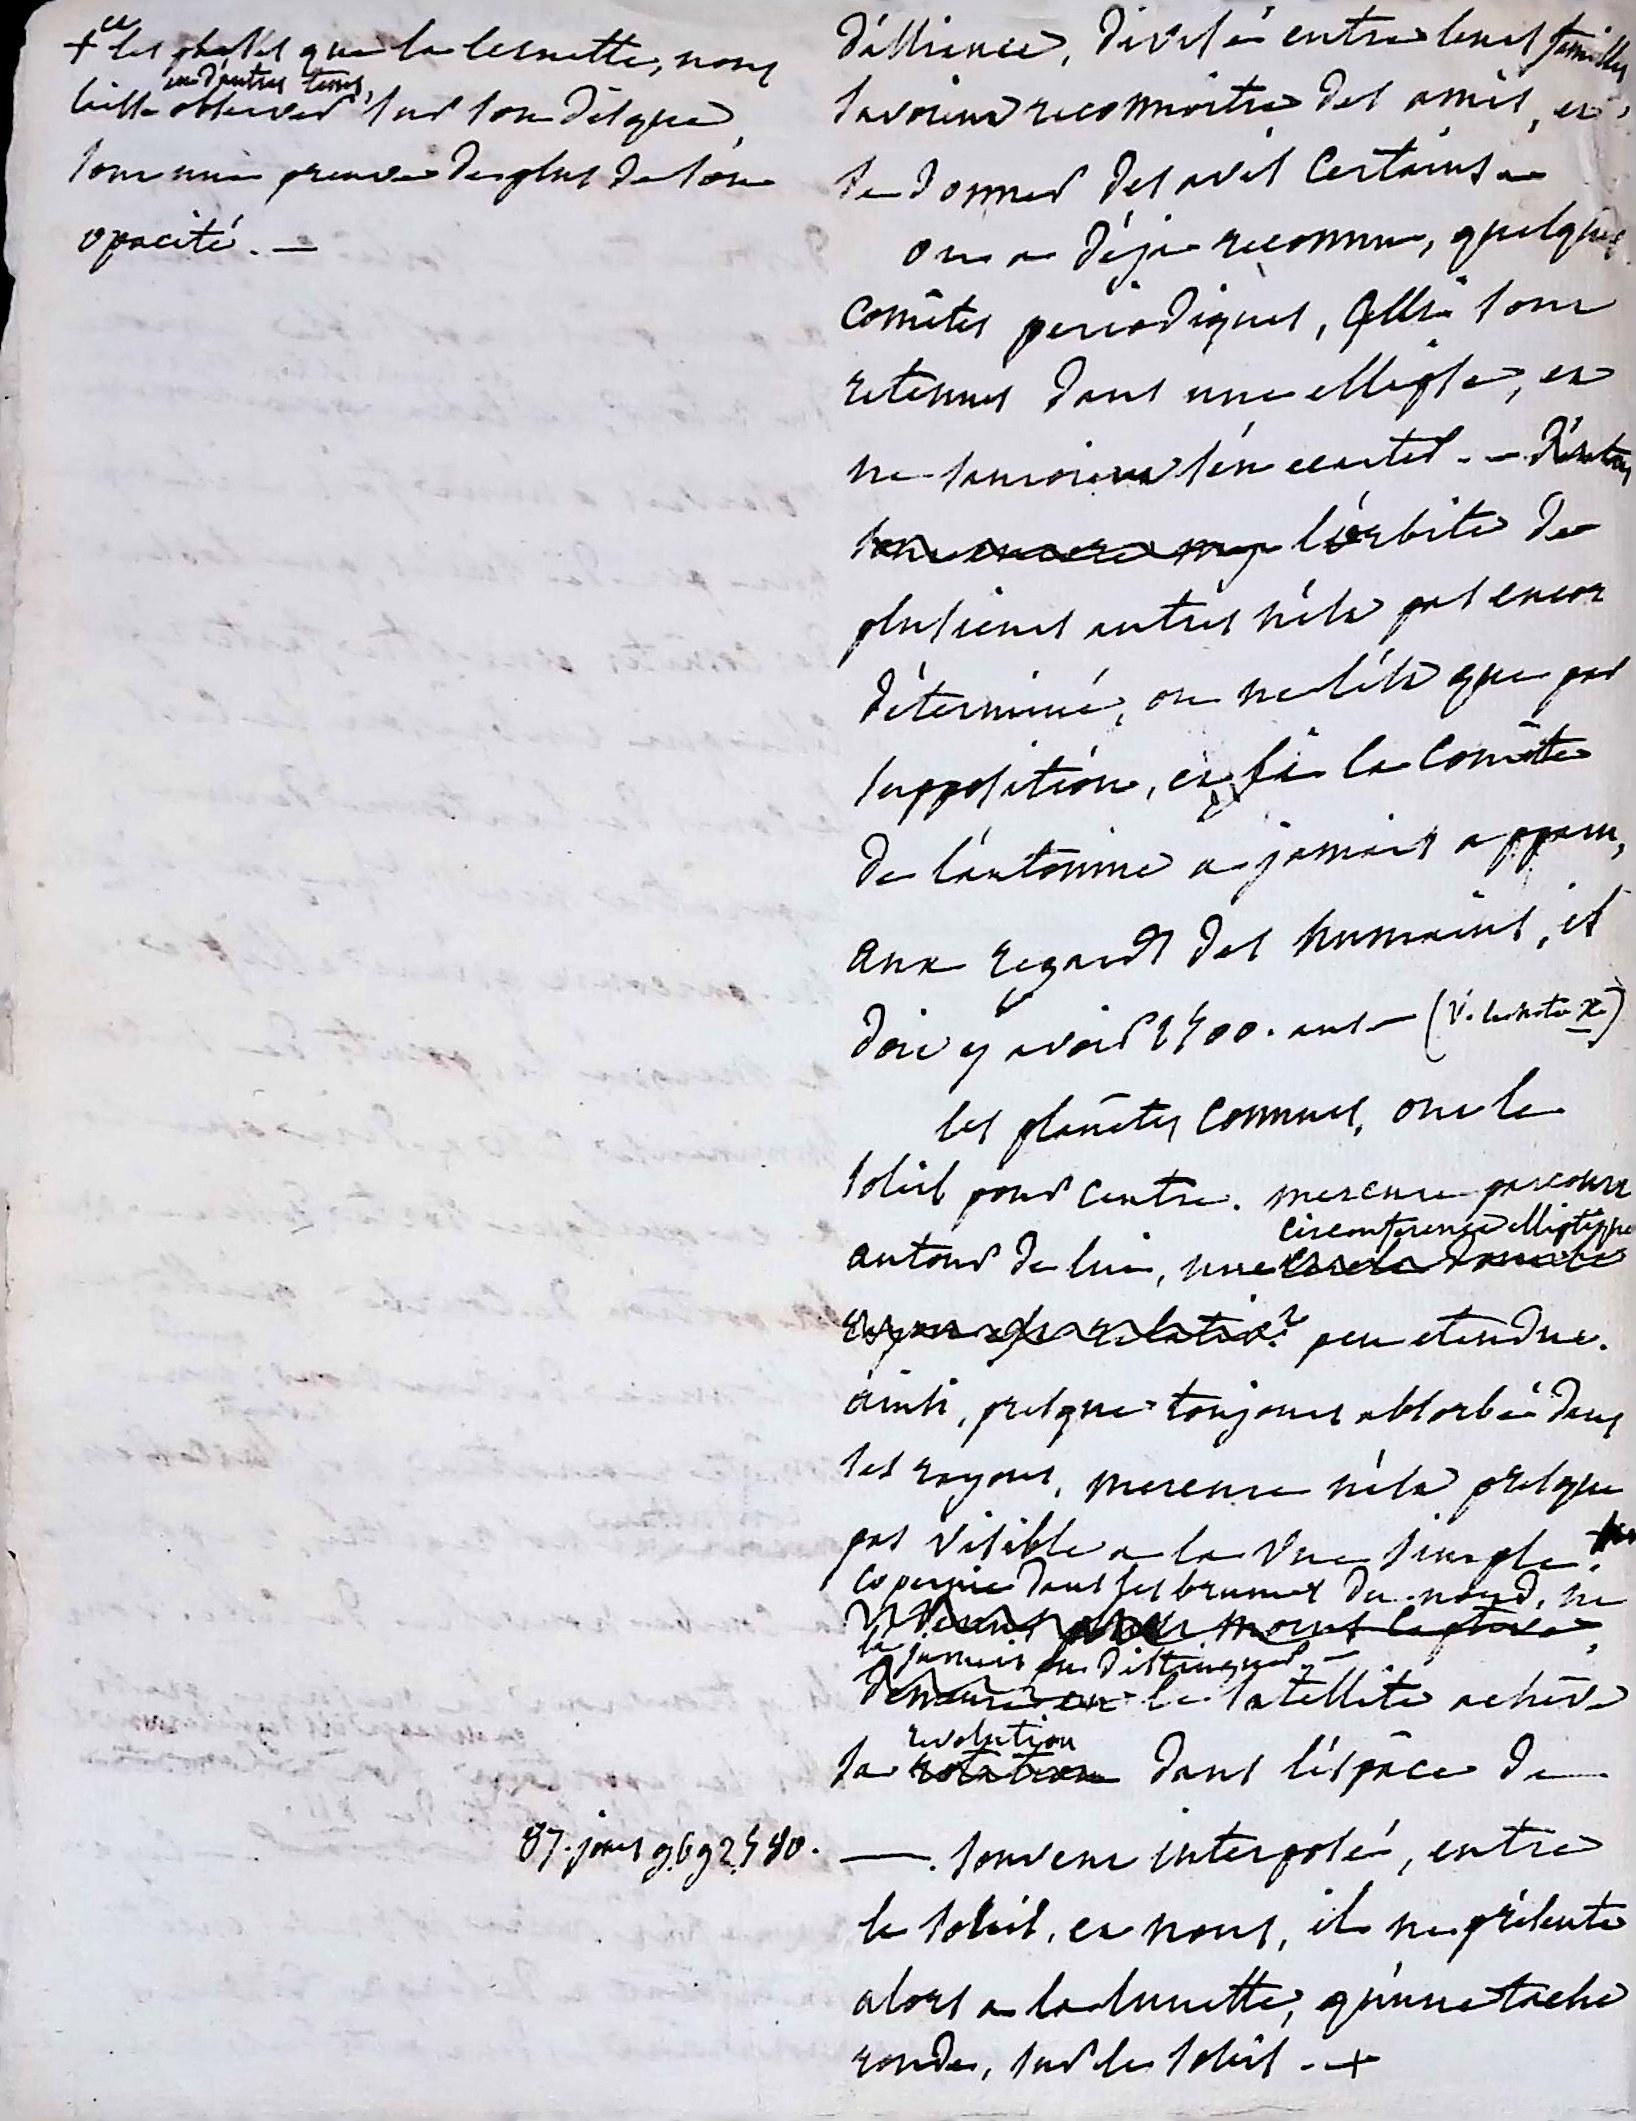 + et les phases que la lunette, nous
laisse observer en d'autres tems, sur son disque,
sont une preuve de plus de son
opacité. —
d'alliance, divisé entre leurs familles
savoient reconnoitre des amis, et
se donner des avis certains —
on a déja reconnu, quelques
comêtes periodiques, qui sont
retenues dans une ellipse, et
ne sauroient s'en ecarter. — d'autres
sont encore l'orbite de
plusieurs autres n'est pas encor
déterminé, ou ne l'est que par
supposition, et si la comête
de l'automne a jamais apparu,
aux regards des humains, il
doit y avoir 2500. ans — (V. la note x.)
les planêtes connues, ont le
soleil pour centre. mercure parcourt
autour de lui, une circonference elliptique
peu etendue.
ainsi, presque toujours absorbée dans
ses rayons, mercure n'est presque
pas visible a la vue simple.
copernic dans les brumes du nord, ne
le jamais pu distinguer. —
le satellite achêve
sa rotation revolution dans l'éspâce de
87. jours 969280. — . souvent interposé, entre
le soleil, et nous, il ne présente
alors a la lunette, qu'une tache
ronde, sur le soleil. +